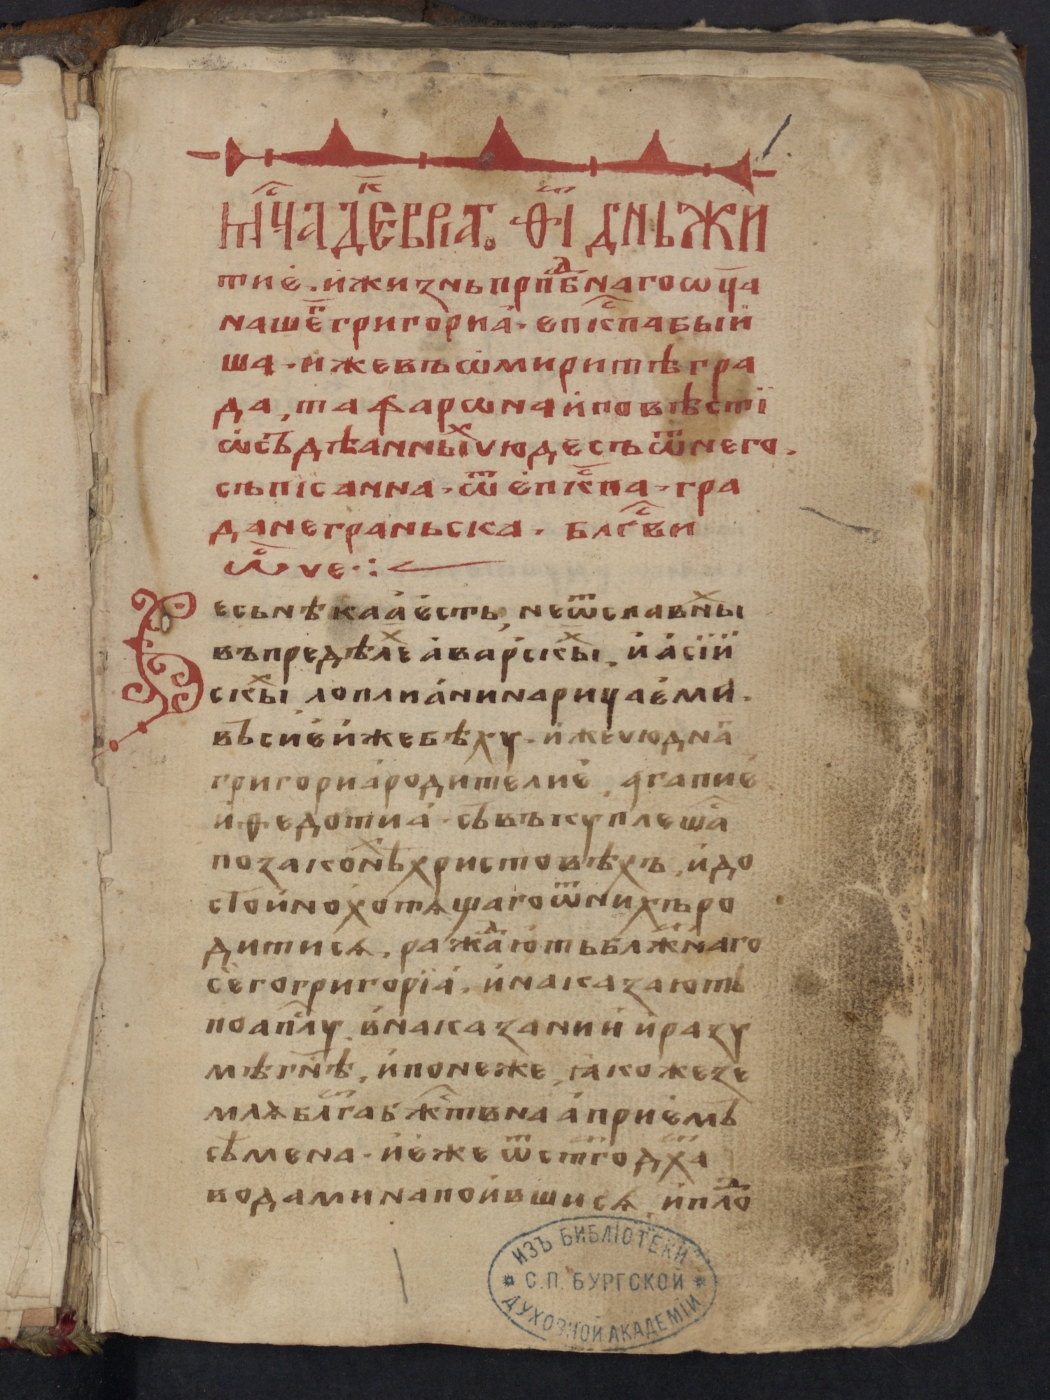 мс҇ца декеврїа. ѳ҃і дн҃ь жи
тие́. и́жизньпрпⷣбнагоѡц҃а
нашеⷢ҇григориа́· епіс҇пабы́й
ша· и́жевъѡ́миритѣгра
да, тафарѡнаи́повѣсті
ѡ́съ́дѣанныⷯчюдесъѿнего.
съпісанна· ѿе́піс҇па· гра
данеграньска· блгⷭ҇ви
ѿч҇е·:
весьнѣкаа́е́сть, неѿславныⷯ
въпредѣлеⷯа́ва́рскыⷯ, и́а́сїй
скыⷯ лоплиа́нинарицае́ми́.
въ́сие́и́жебѣху· и́жечюднаⷢ
григориа́родителие́, агапие́
и́ѳедотиа́· съ́въкуплеша
позаконѣⷯхристовѣхъ, и́до
стои́нохотящагоѿнихъро
дитися, ражⷣаютьблаⷤнаго
сегогригорїа́. и́наказають
поапⷭ҇лу внаказании́ и́разу
мѣгн҃ѣ, и́понеже, ꙗкожезе
млꙗблⷢ҇абжⷭ҇твнаа́прие́мъ
сѣ́мена· и́е́жеѿстⷢ҇одх҃а
водаминапои́вшися, и́плоⷣ
ИЗЪ БИБЛІОТЕКИ
С.П. БУРГСКОЙ
ДУХОВНОЙ АКАДЕМІИ